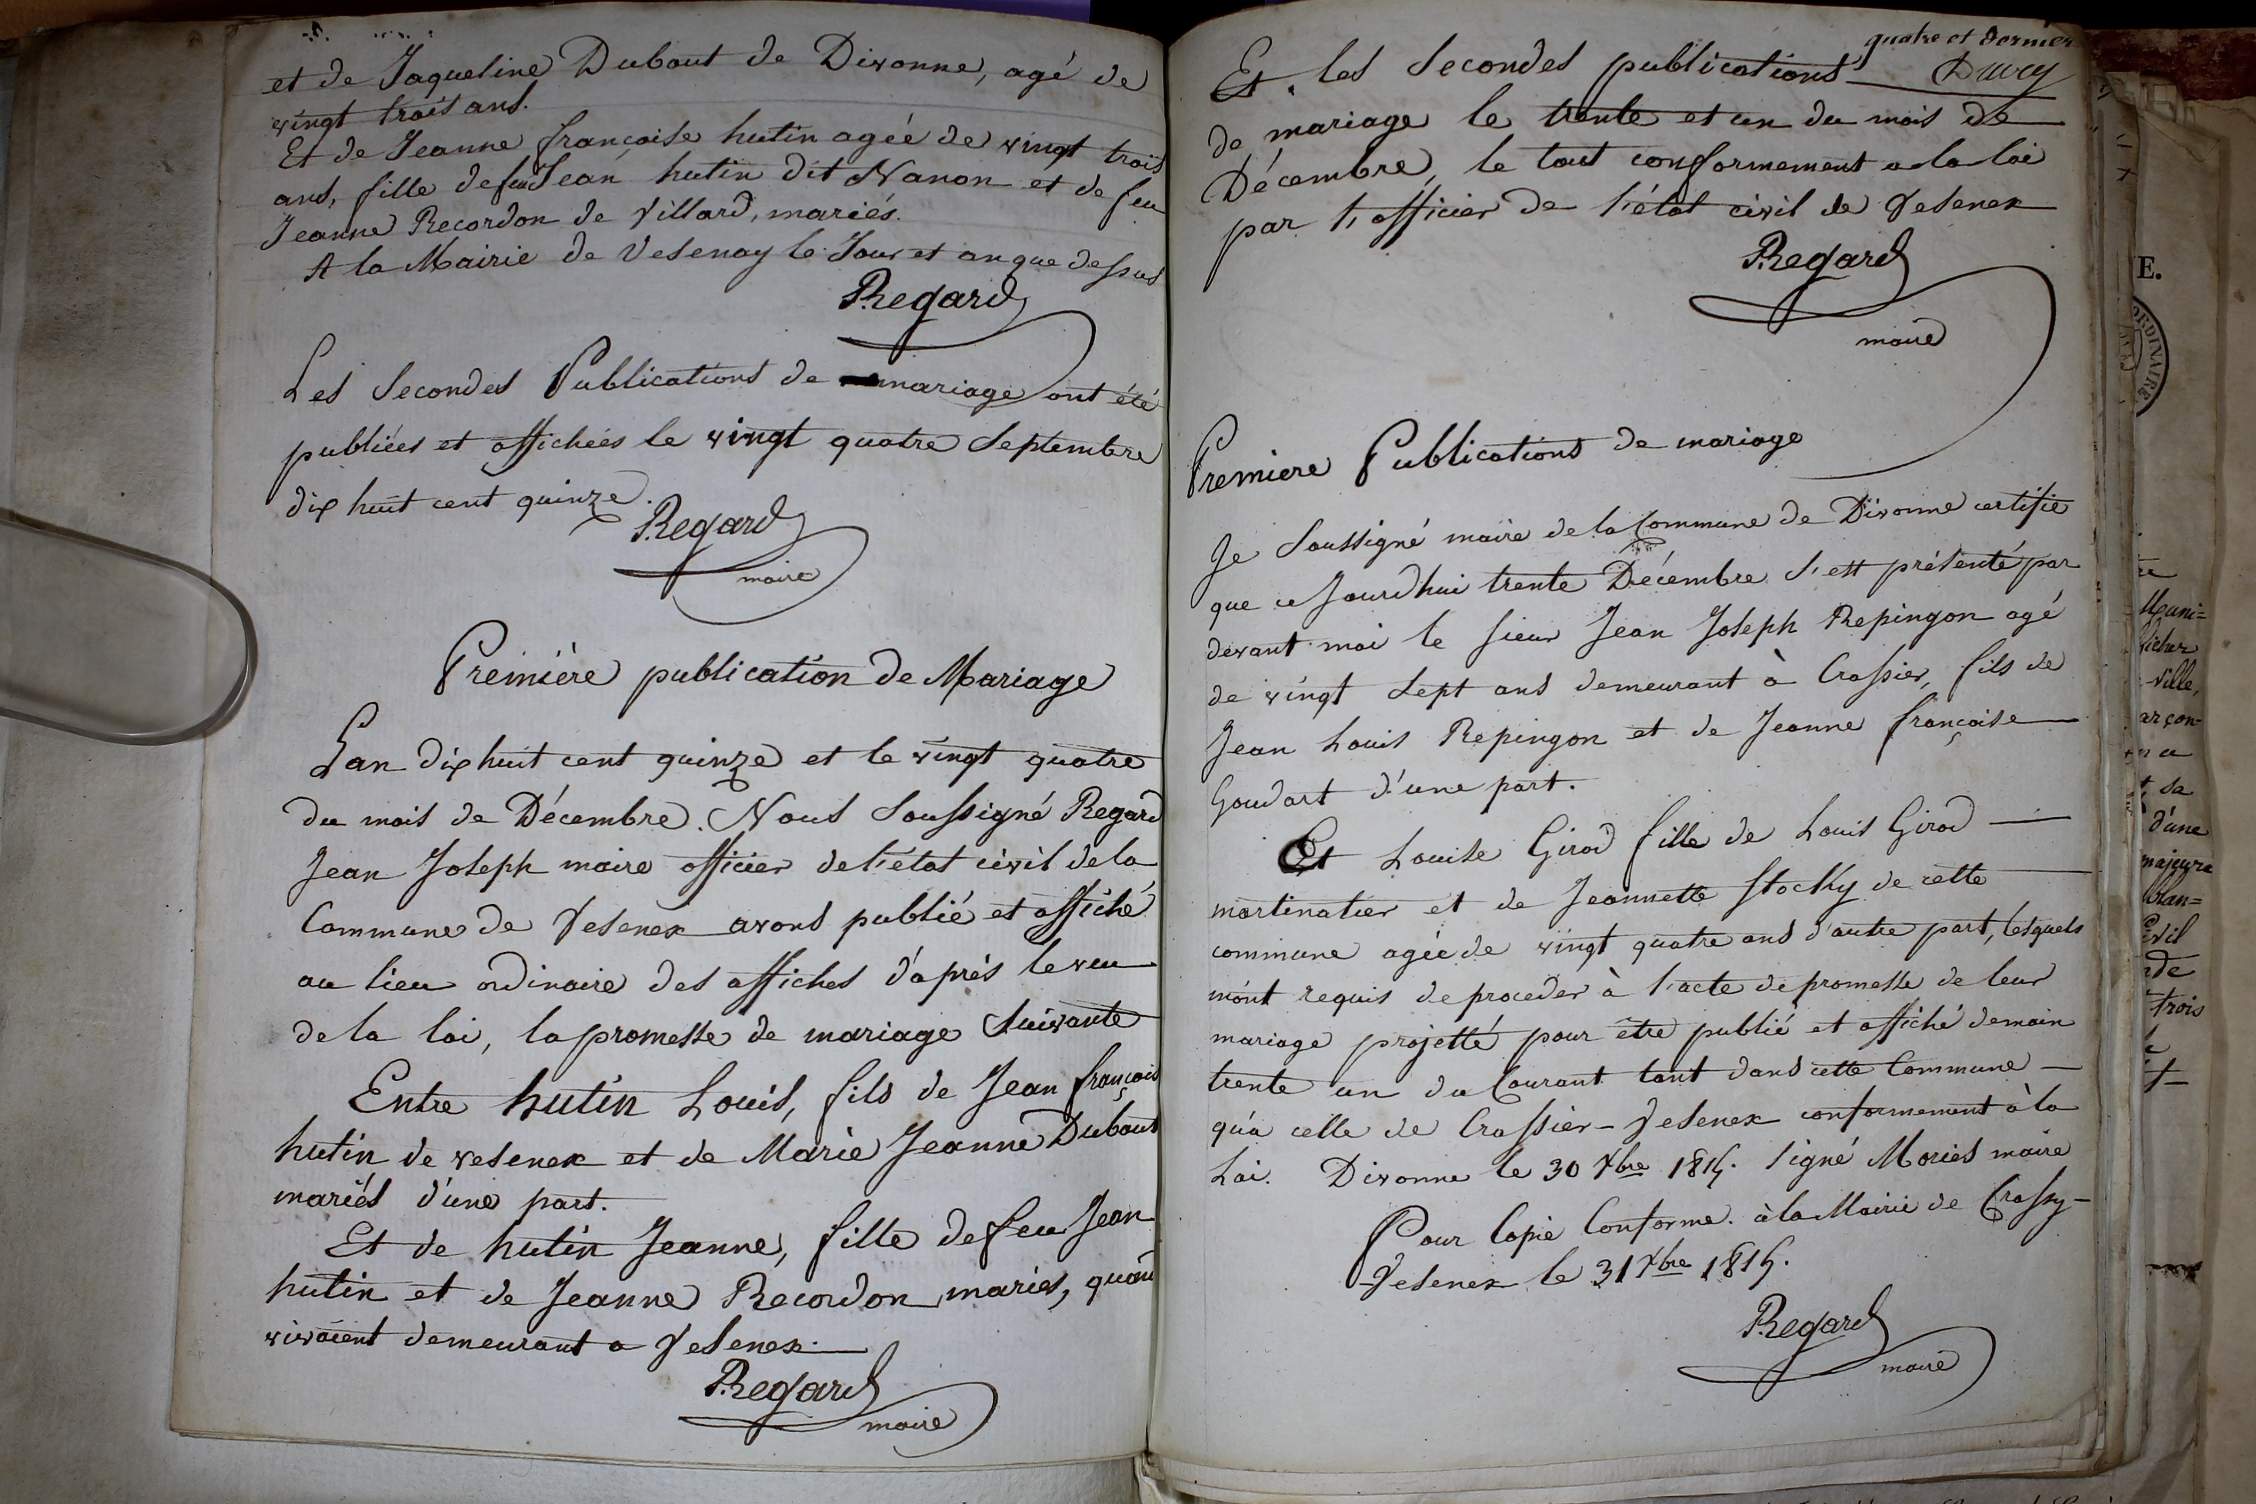 et de Jaqueline Dubout de Divonne, agé de
vingt trois ans.
Et de Jeanne françoise hutin agée de vingt trois
ans, fille de feu Jean hutin dit Nanon et de feu
Jeanne Recordon de Villard, mariés.
A la Mairie de Vesenay le Jour et an que dessus
Regard
Les Secondes Publications de mariage ont été
publiées et affichées le vingt quatre Septembre
dix huit cent quinze.
Regard
maire
Première publication de Mariage
L'an dix huit cent quinze et le vingt quatre
du mois de Décembre. Nous Soussigné Regard
Jean Joseph maire officier de l'état civil de la
Commune de Vesenex avons publié et affiché
au lieu ordinaire des affiches d'après le veu
de la loi, la promesse de mariage Suivante
Entre hutin Louis, fils de Jean françois
hutin de vesenex et de Marie Jeanne Dubout
mariés d'une part.
Et de hutin Jeanne, fille de feu Jean
hutin et de Jeanne Recordon mariés, quan
vivoient demeurant a Vesenex.
Regard
maire
quatre et dernier
Et les Secondes publications
de mariage le trente et un du mois de
Décembre, le tout conformement a la loi
par l'officier de l'état civil de Vesenex
Regard
maire
Premiere Publications de mariage
Je Soussigné maire de la Commune de Divonne certifie
que ce Jourd'hui trente Décembre S'est présenté par
devant moi le Sieur Jean Joseph Repingon agé
de vingt Sept ans demeurant à Crassier, fils de
Jean Louis Repingon et de Jeanne françoise
Goudart d'une part.
Et Louise Girod fille de Louis Girod
martinatier et de Jeannette Stocky de cette
commune agée de vingt quatre ans d'autre part, lesquels
m'ont requis de proceder à l'acte de promesse de leur
mariage projetté pour être publié et affiché demain
trente un du Courant tant dans cette Commune
qu'a celle de Crassier-Vesenex conformement à la
Loi. Divonne le 30 Xbre 1815. Signé Moriés maire
Pour Copie Conforme. à la Mairie de Crassy-
-Vesenex le 31 Xbre 1815.
Regard
maire
E.
ORDINAIRE
Muni=
ville,
t sa
d'une
majeure
trois